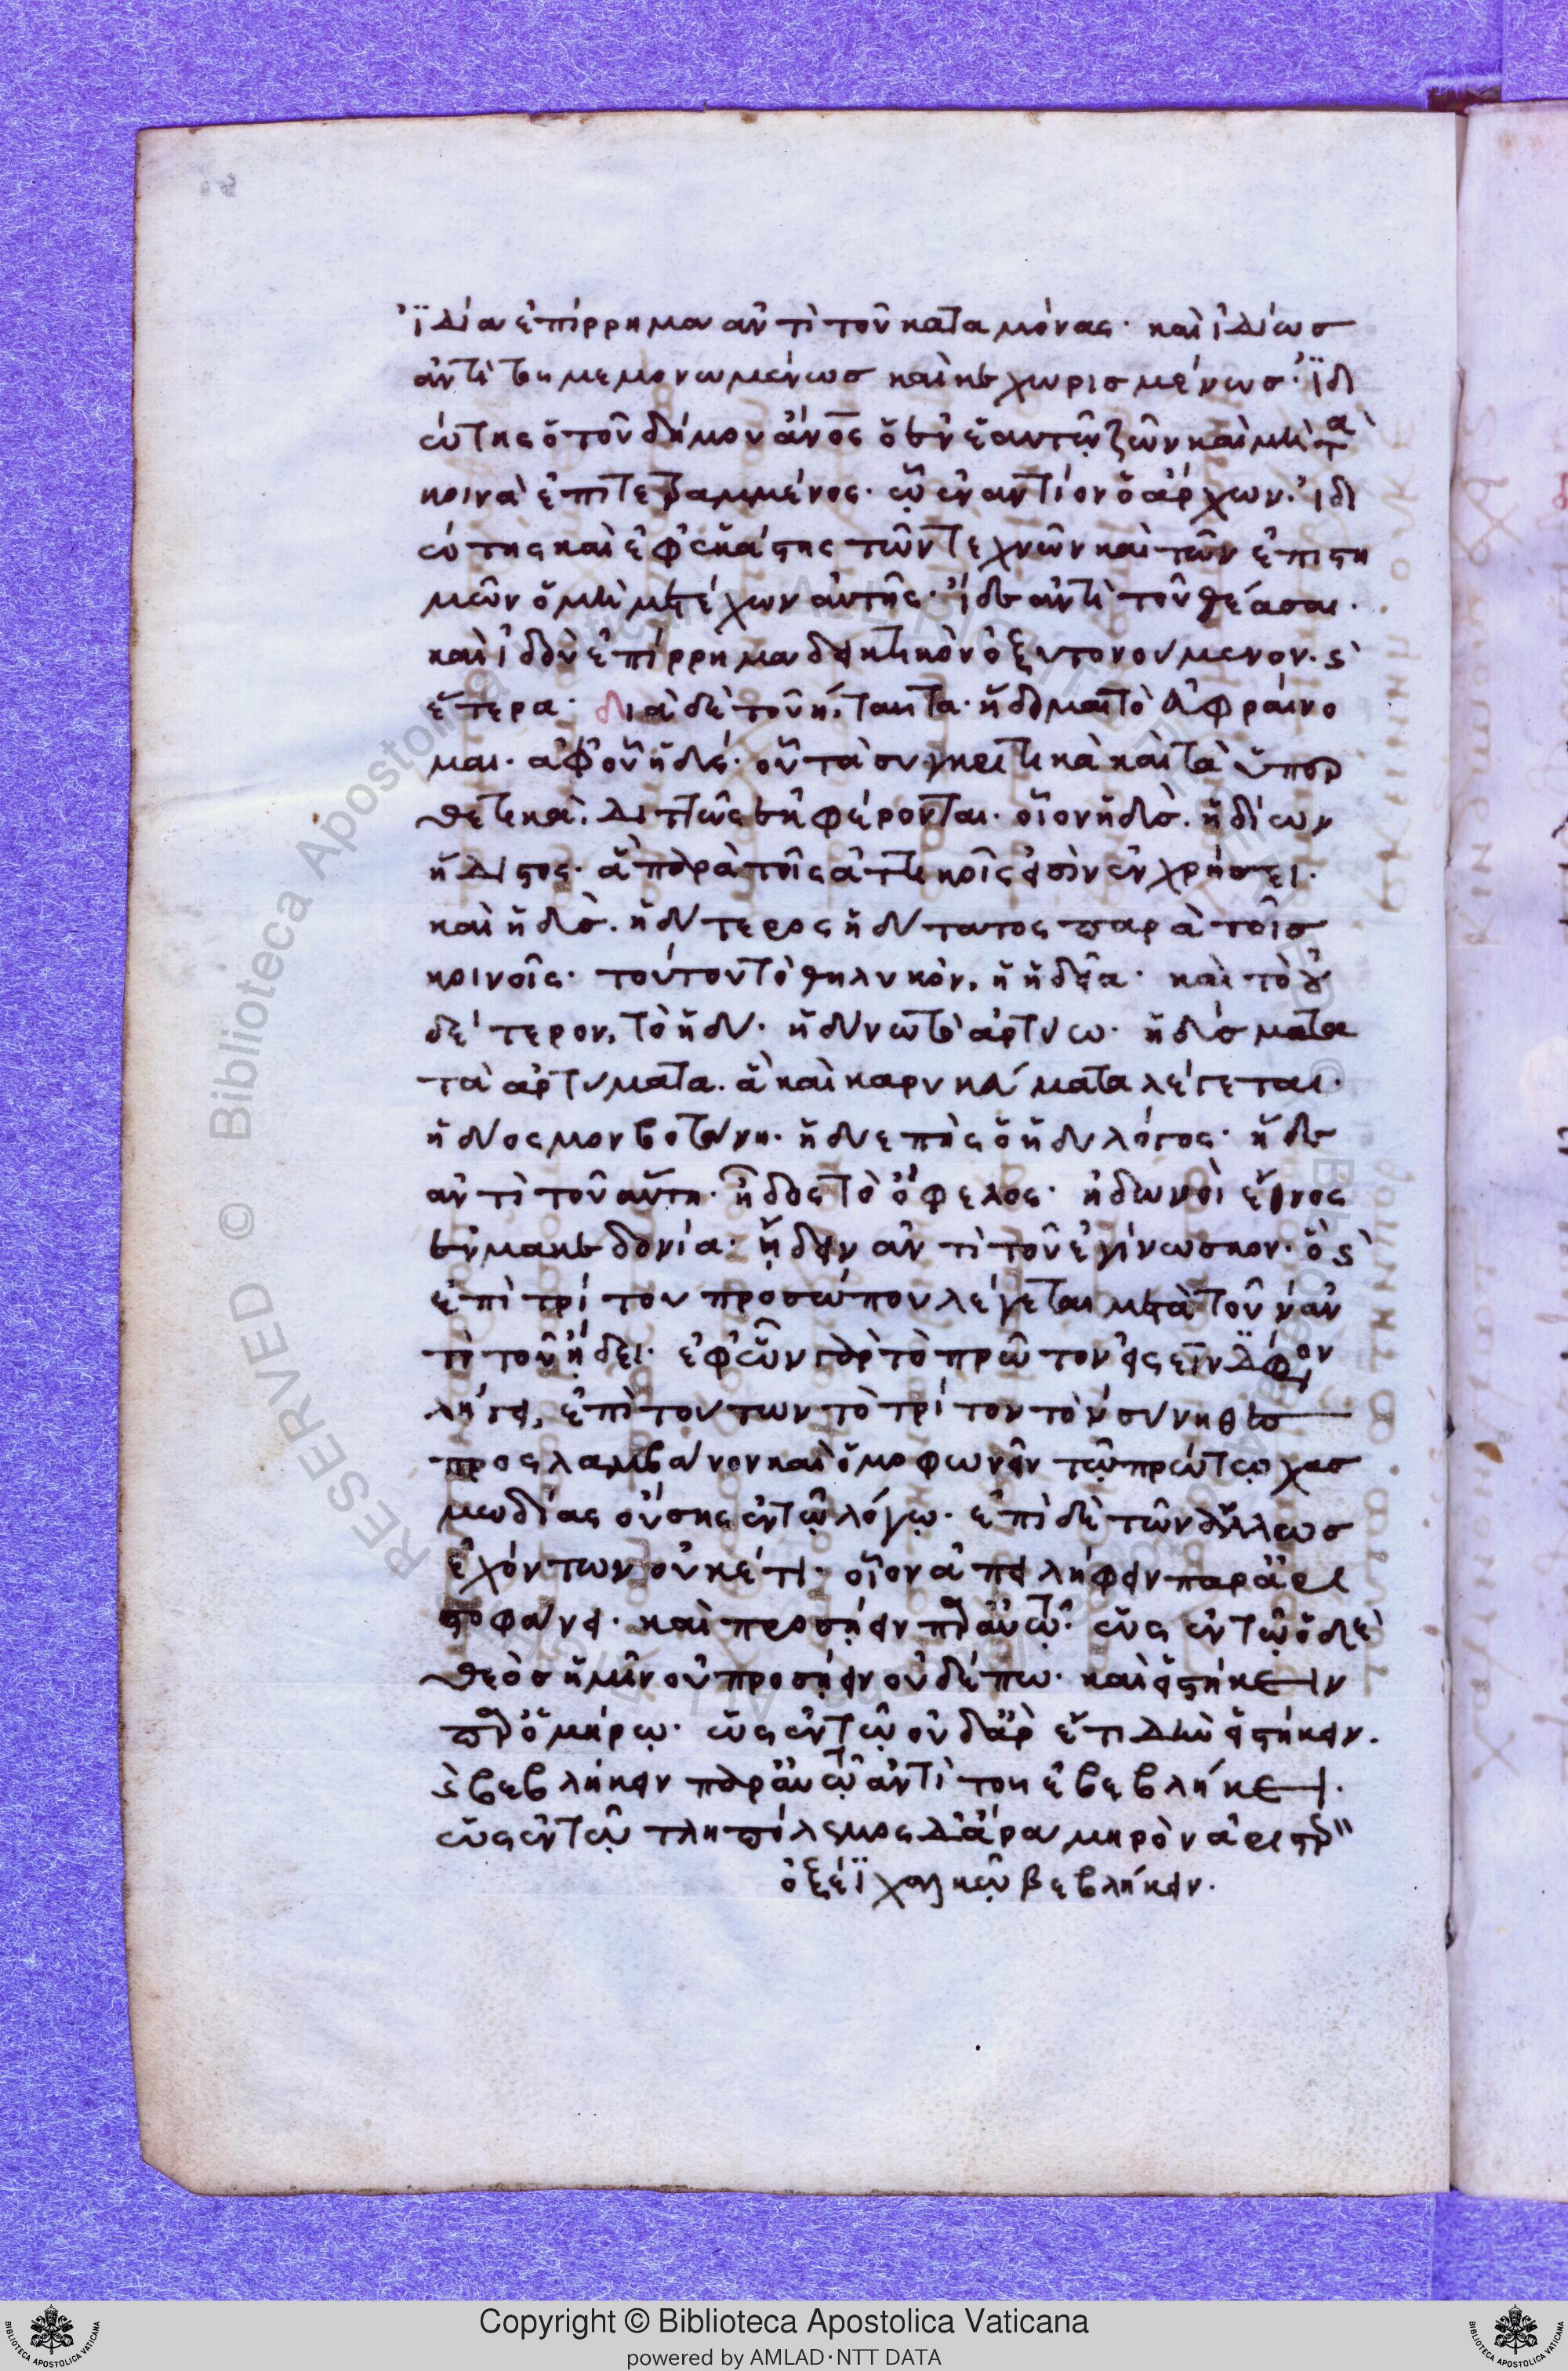 ἰδία ἐπίρρημα ἀντὶ τοῦ κατα μόνας· καὶ ἰδίως
ἀντὶ τοῦ μεμονωμένως καὶ κεχωρισμένως· ἰδι
ώτης ὁ τοῦ δήμου ἄνος ὁ ἐν ἑαυτῷ ζῶν καὶ μὴ τὰ
κοινὰ ἐπιτετραμμένος· ᾧ ἐναντίον ὁ ἄρχων· ἰδι
ώτης καὶ ἐφ' ἑκάστης τῶν τεχνῶν καὶ τῶν ἐπιστη
μῶν ὁ μὴ μετέχων αὐτῆς· ἴδε ἀντὶ τοῦ θέασαι·
καὶ ἰδοὺ ἐπίρρημα δεικτικὸν ὀξυτονούμενον· καὶ
ἕτερα· διὰ δὲ τοῦ η, ταῦτα· ἥδομαι τὸ εὐφραίνο
μαι· ἀφ' οὗ ἡδύς· οὗ τὰ συγκριτικὰ καὶ τὰ ὑπερ
θετικὰ, διττῶς ἐκφέρονται· οἷον ἡδὺς· ἡδίων
ἥδιστος· ἃ παρὰ τοῖς ἀττικοῖς εἰσὶν ἐν χρήσει·
καὶ ἡδὺς· ἡδύτερος ἡδύτατος παρὰ τοῖς
κοινοῖς· τούτου τὸ θηλυκὸν, ἡ ἡδεῖα· καὶ τὸ οὐ
δέτερον, τὸ ἡδύ· ἡδύνω τὸ ἀρτύω· ἡδύσματα
τὰ ἀρτύματα· ἃ καὶ καρυκεύματα λέγεται·
ἡδύοσμον βοτάνη· ἡδυεπὴς ὁ ἡδυλόγος· ἥδε
ἀντὶ τοῦ αὕτη· ἦδος τὸ ὄφελος· ἠδωνοὶ ἔθνος
ἐν μακεδονία· ᾔδειν ἀντὶ τοῦ ἐγίνωσκον· ὃ καὶ
ἐπὶ τρίτου προσώπου λέγεται μετὰ τοῦ ν ἀν
τὶ τοῦ ᾔδει· ἐφ' ὧν γὰρ τὸ πρῶτον εἰς εῖν δίφθογγον
λήγει, ἐπὶ τούτων τὸ τρίτον τὸ ν συνηθες
προσλαμβάνον καὶ ὁμοφωνεῖν τῷ πρώτῳ χασ
μωδίας οὔσης ἐν τῷ λόγῳ· ἐπὶ δὲ τῶν ἄλλως
ἐχόντων οὐκέτι· οἷον ἀπειλήφειν παρὰ ἀρι
στοφάνει· καὶ προσῄειν παρὰ αὐτῷ· ὡς ἐν τῷ ὁ δὲ
θεὸς ἡμῖν οὐ προσῄειν οὐδέπω· καὶ εἱστήκειν
παρ' ὁμήρῳ· ὡς ἐν τῷ οὐδ' ἄρ' ἔτι δὴν εἱστήκειν.
καὶ βεβλήκειν παρὰ αὐτῷ ἀντὶ τοῦ ἐβεβλήκει.
ὡς ἐν τῷ τληπόλεμος δ' ἄρα μηρὸν ἀριστερὸν
ὀξέϊ χαλκῷ βεβλήκειν.
Copyright © Biblioteca Apostolica Vaticana
powered by AMLAD·NTT DATA